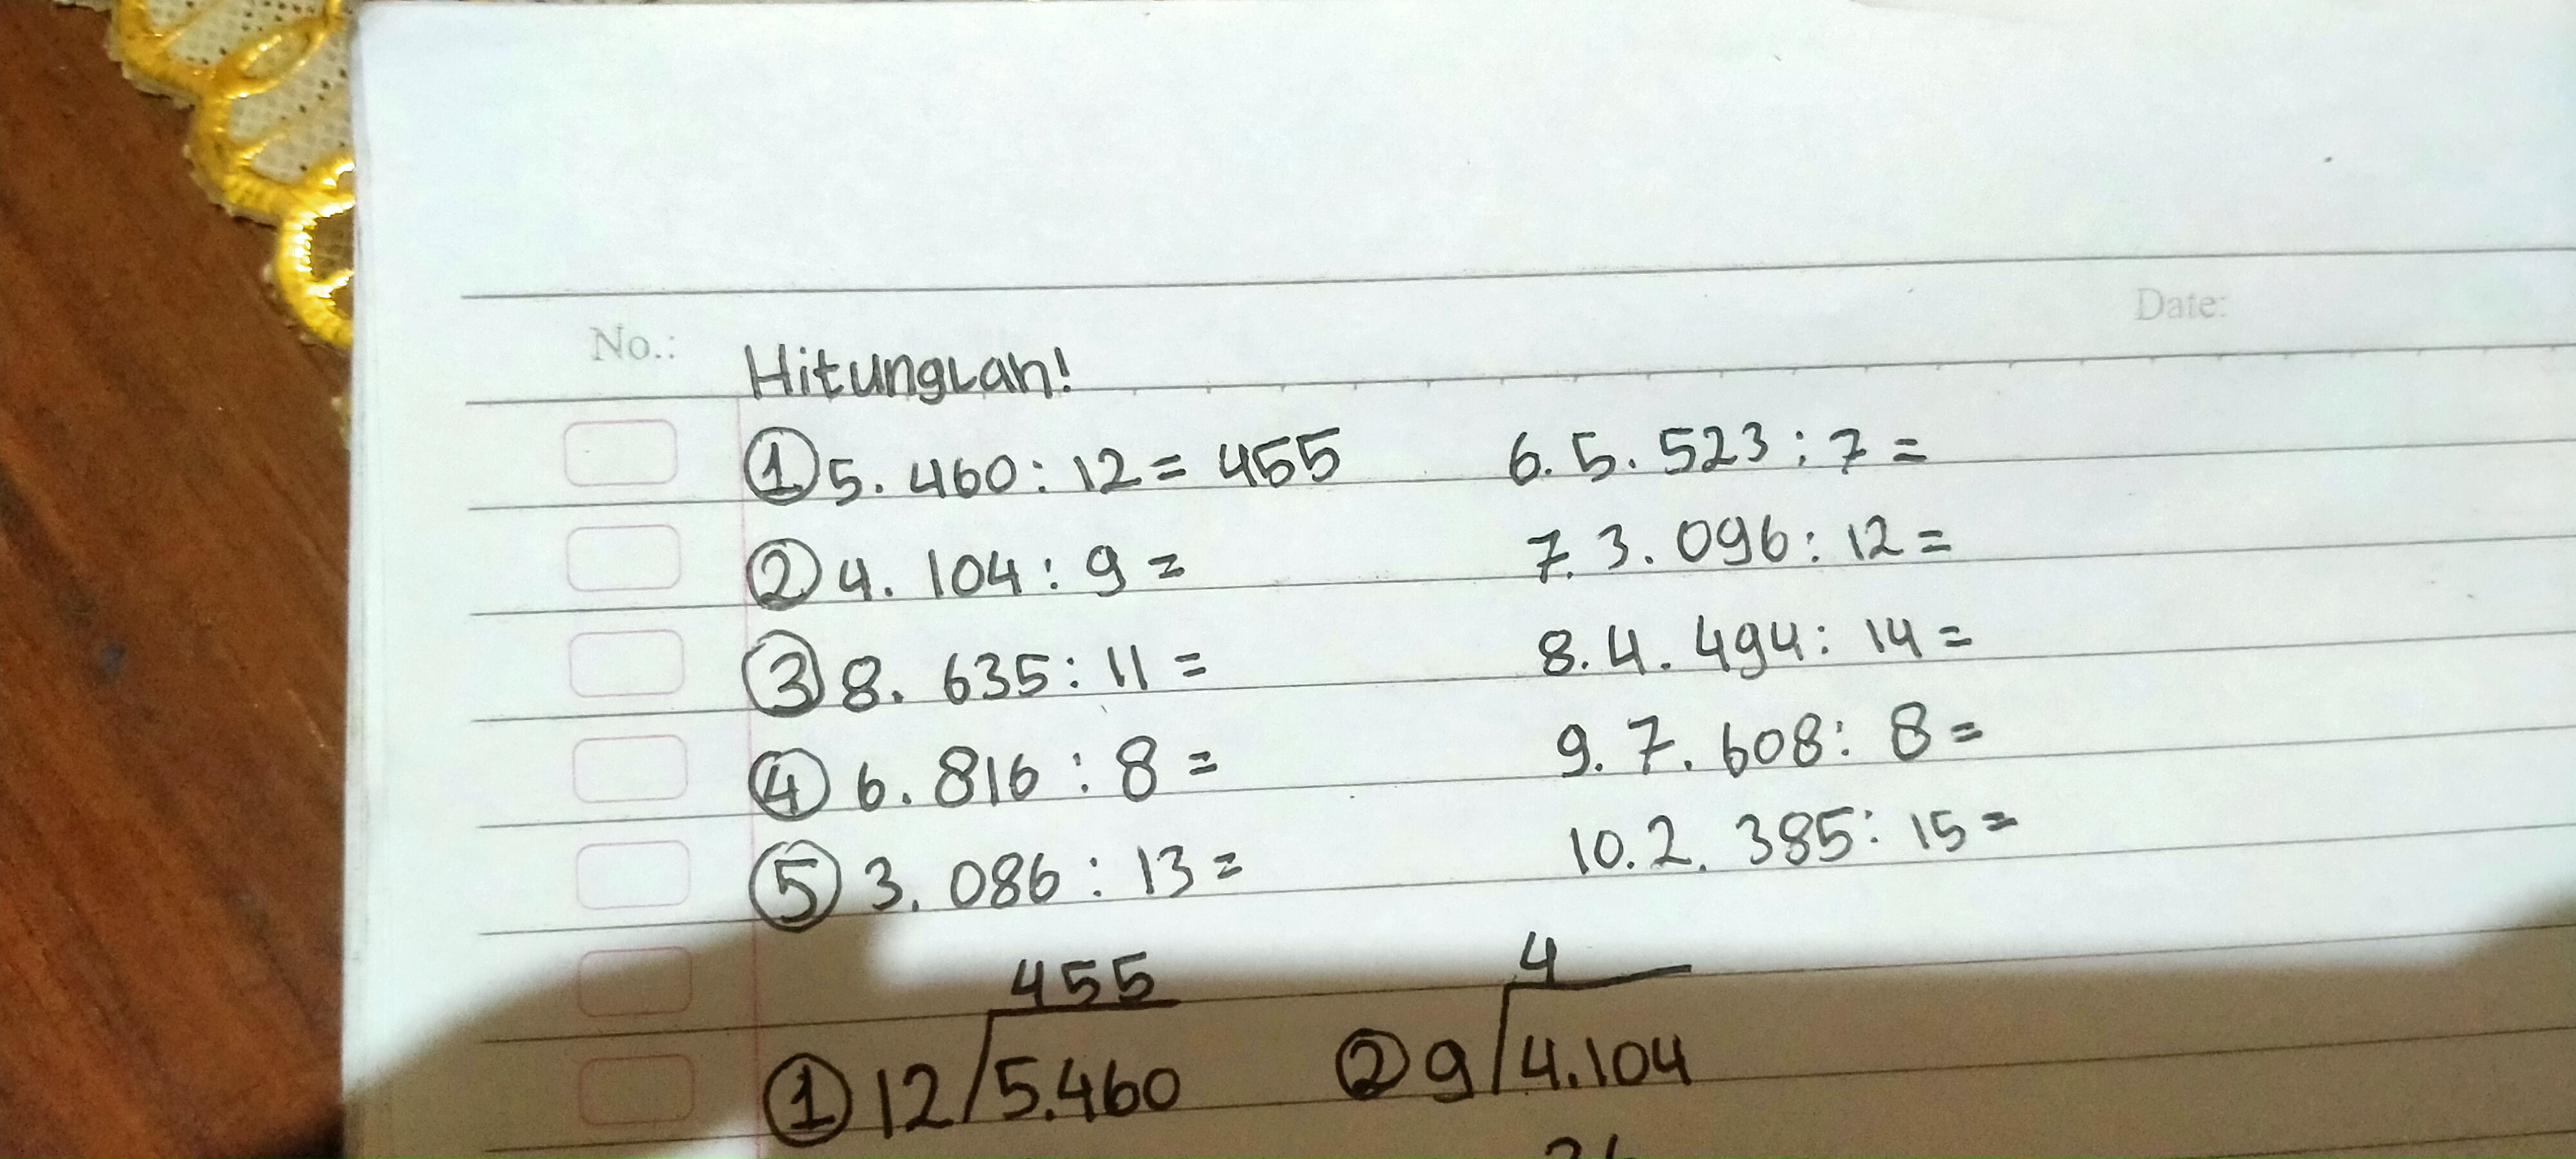 No.:
Date:
Hitunglah!
① 5. 460 : 12 = 455
② 4. 104 : 9 =
③ 8. 635 : 11 =
④ 6. 816 : 8 =
⑤ 3. 086 : 13 =
6. 5. 523 : 7 =
7. 3. 096 : 12 =
8. 4. 494 : 14 =
9. 7. 608 : 8 =
10. 2. 385 : 15 =
455
① 12 / 5.460
4
② 9 / 4.104